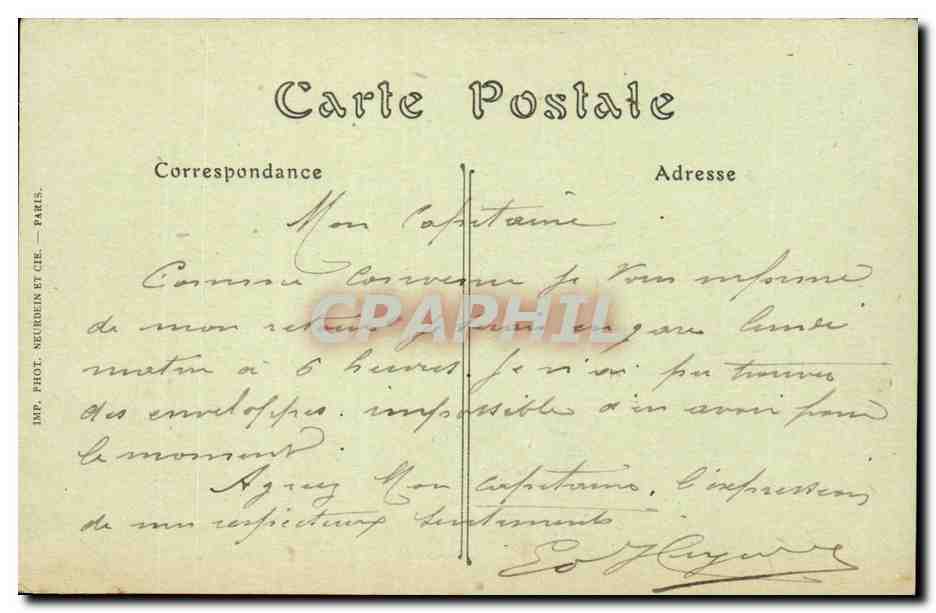 Carte Postale
Correspondance
Adresse
IMP. PHOT. NEURDEIN ET CIE. — PARIS.
Mon Capitaine
Comme Convenu Je Vous informe
de mon retour en gare lundi
matin à 6 heures. Je n'ai pu trouver
des enveloppes. impossible d'en avoir pour
le moment.
Agréez Mon Capitaine, l'expression
de mes respectueux sentiments
CPAPHIL